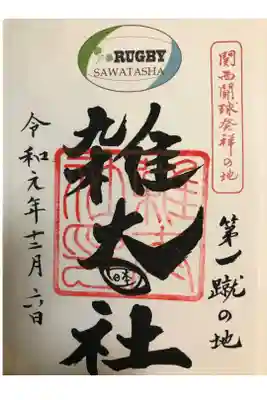 RUGBY
SAWATASHA
関西闘球発祥の地
第一蹴の地
雑太社
日本
令和元年十二月六日